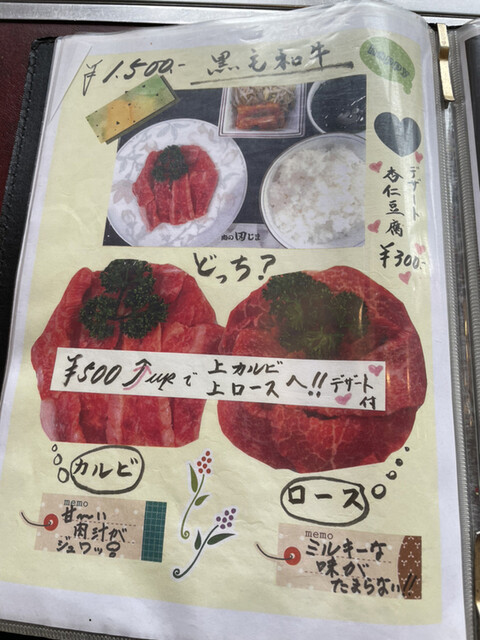 ¥1.500.-
黒毛和牛
デザート
杏仁豆腐
¥300.-
どっち?
¥500 upで
上カルビ
上ロースへ!!
デザート
付
カルビ
ロース
memo
甘〜い
肉汁が
ジュワッ
memo
ミルキーな
味が
たまらない!!